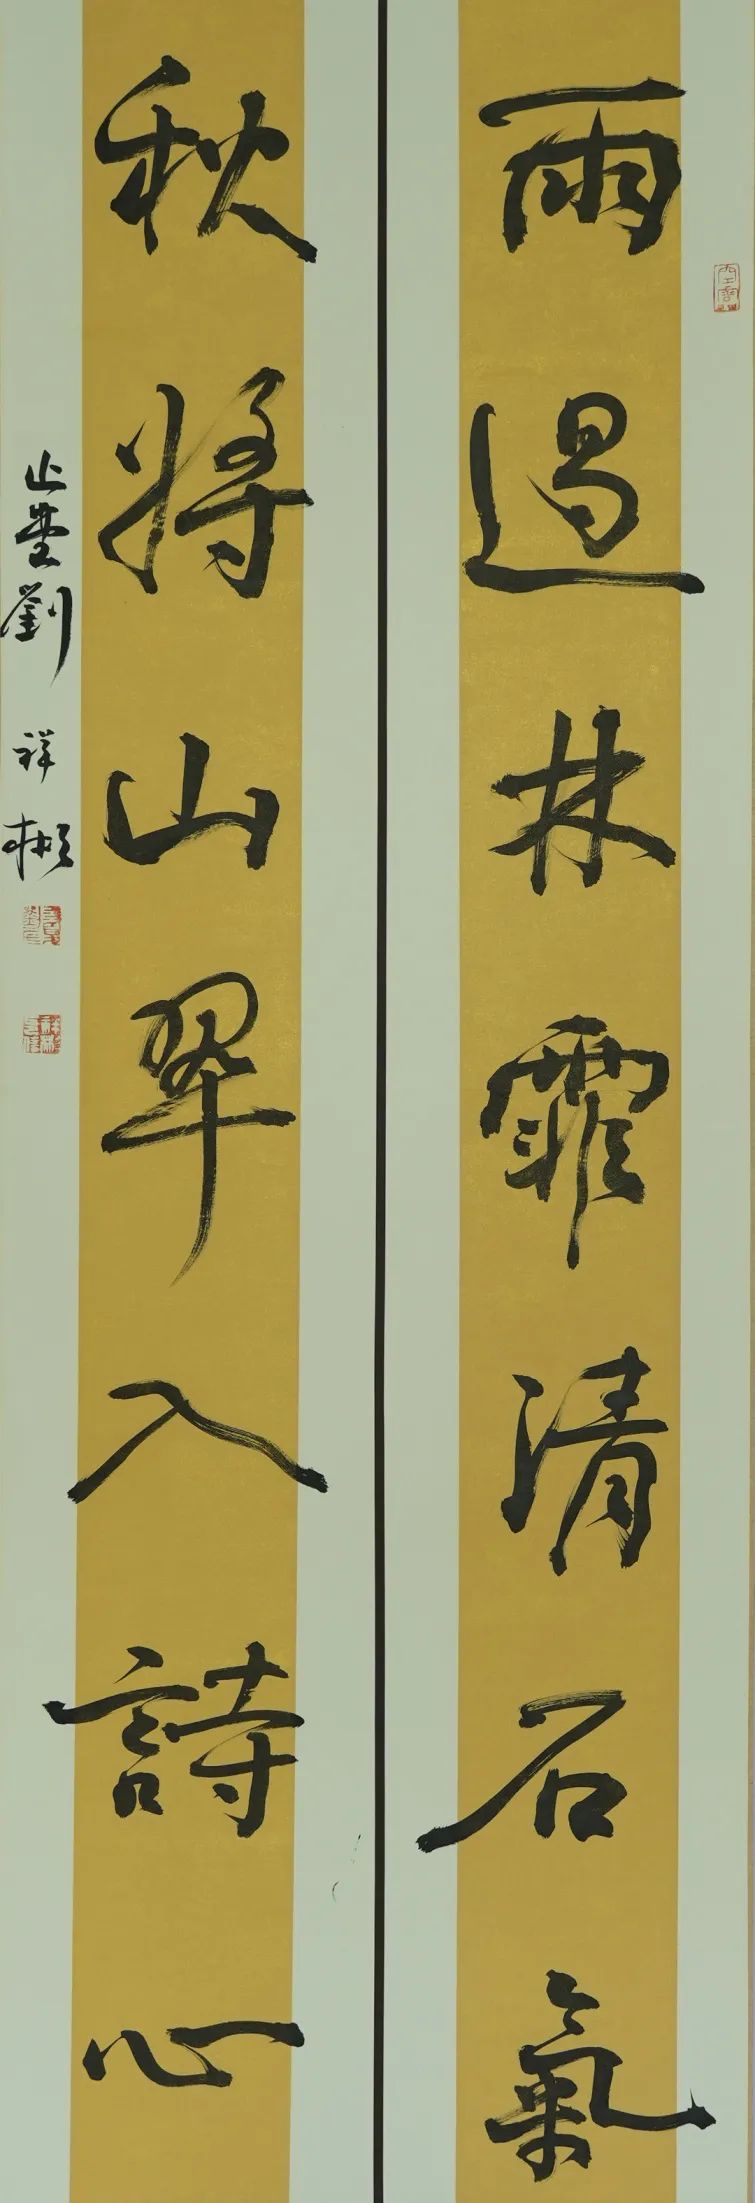 雨過林霏清石氣
秋將山翠入詩心
止堂劉祥彬